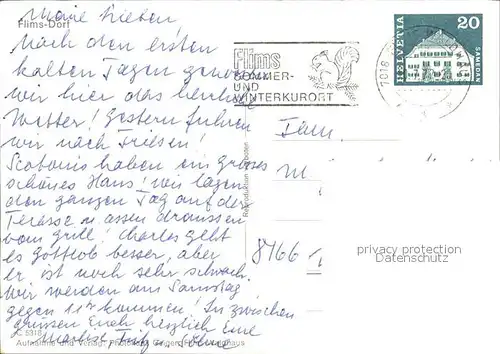 Meine Lieben
Flims-Dorf
Nach den ersten
kalten Tagen
wir hier das herrliche
Wetter! Gestern fuhren
wir nach
haben ein grosses
schönes Haus! Wir lagen
den ganzen Tag auf der
Terasse u. assen draussen
vom Grill! Charles geht
es gottlob besser, aber
er ist noch sehr schwach.
Wir werden am Samstag
gegen 11 kommen! In zwischen
grüssen Euch herzlich Eure
Flims
SOMMER-
UND
WINTERKURORT
7018
HELVETIA
20
SAMEDAN
Fam.
M
8166
Reproduktion verboten
privacy protection
Datenschutz
5318
Aufnahme und Verlag: